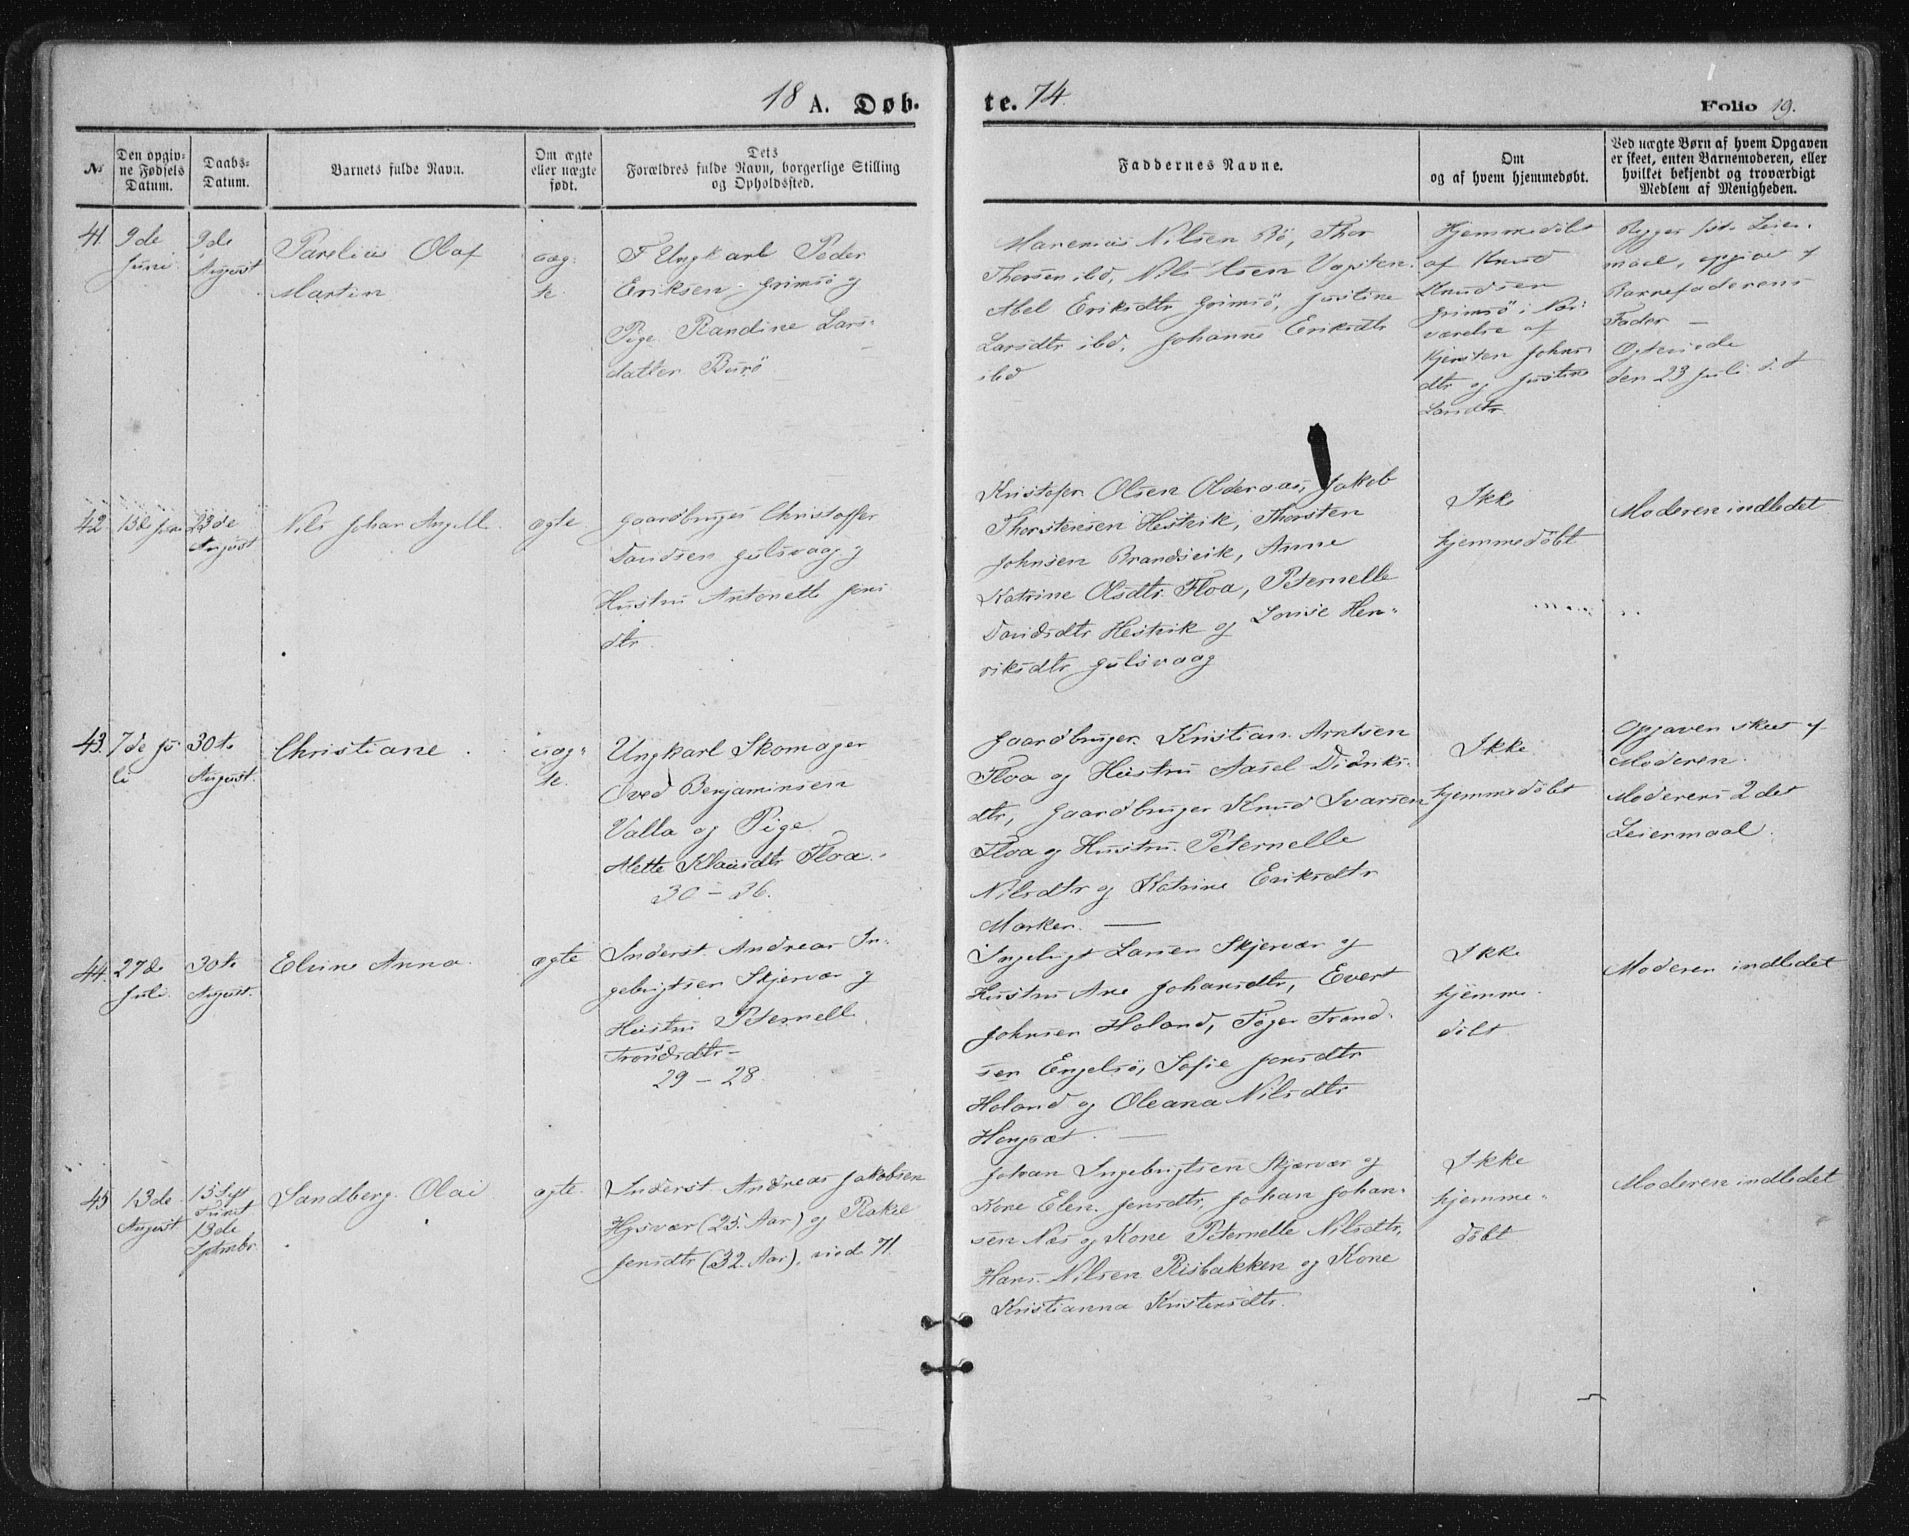 18 A. Døb-
te. 74.
Folio 19.
№
Den opgiv-
ne Fødsels
Datum.
Daabs-
Datum.
Barnets fulde Navn.
Om ægte
eller uægte
født.
Dets
Forældres fulde Navn, borgerlige Stilling
og Opholdssted.
Faddernes Navne.
Om
og af hvem hjemmedøbt.
Ved uægte Børn af hvem Opgaven
er skeet, enten Barnemoderen, eller
hvilket bekjendt og troværdigt
Medlem af Menigheden.
41
9de
Juni
9de
August
Parelius Olaf
Martin
uæg-
te.
F Ungkarl Peder
Eriksen Grimsö og
Pige Randine Lars-
datter Burö
Nilsen Bö, Thor
Thorsen ibd, Nils Olsen
Abel Eriksdtr Grimsö, Justine
Larsdtr ibd, Johanne Eriksdtr
ibd
Hjemmedöbt
af Knud
Knudsen
Grimsö i Nær
værelse af
Kjersten Johns
dtr og Justine
Larsdtr
Begges 1ste Leier-
maal, opgivet af
Barnefaderens
Fader —
den 23 Juli d.A
42
13de Juni
23de
August
Nils Johan Angell
ægte
Gaardbruger Christoffer
Davidsen Gulsvaag og
Hustru Antonette Jens
dtr.
Kristofer Olsen Oldervaas, Jakob
Thorstensen Hestvik, Thorsten
Johnsen Brandsvik, Anne
Katrine Olsdtr Floa, Peternelle
Davidsdtr Hestvik og Lovise Hen-
riksdtr Gulsvaag
Ikke
hjemmedöbt
Moderen indledet
43.
7de Ju
li
30te
August.
Christiane
uæg-
te.
Ungkarl Skomager
Oved Benjaminsen
Valla og Pige
Mette Klausdtr Floa.
30 – 36.
Gaardbruger Kristian Arntsen
Floa og Hustru Aasel Didriks-
dtr, Gaardbruger Knud Ivarsen
Floa og Hustru Peternelle
Nilsdtr og Katrine Eriksdtr
Marken. —
Ikke
hjemmedöbt
Opgaven skeet af
Moderen.
Moderens 2det
Leiermaal.
44.
27de
Juli.
30te
August.
Eline Anna.
ægte
Inderst Andreas In-
gebrigtsen Skjervær og
Hustru Peternelle
Trondsdtr –
29 – 28.
Ingebrigt Larsen Skjervær og
Hustru Ane Johansdtr, Evert
Johnsen Holand, Peger Trond-
sen Engelsö, Sofie Jensdtr
Holand og Oleana Nilsdtr
Hongsæt. —
Ikke
hjemme
döbt
Moderen indledet
45
13de
August
15 Sept
13de
Septmbr
Sandberg Olai
ægte.
Inderst Andreas Jakobsen
Hysvær (25. Aar) og Rakel
Jensdtr (32. Aar), viede 71.
Johan Ingebrigtsen Skjærvær og
Kone Elen Jensdtr, Johan Johan-
sen Næs og Kone Peternelle Nilsdtr,
Hans Nilsen Risbakken og Kone
Kristianna Kristensdtr.
Ikke
hjemme-
döbt
Moderen indledet